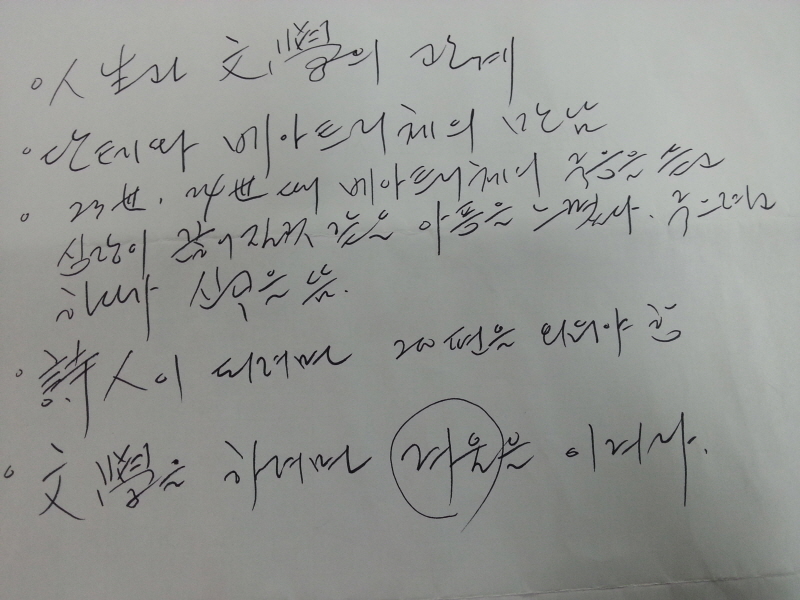 ◦ 人生과 文學의 관계
◦ 단테와 베아트리체의 만남
◦ 23世, 24世 때 베아트리체의 죽음을 듣고
심장이 찢어지는 아픔을 느꼈다. 죽으려고
하다가 신곡을 씀.
◦ 詩人이 되려면 200편을 외워야 함
◦ 文學을 하려면 이러라.